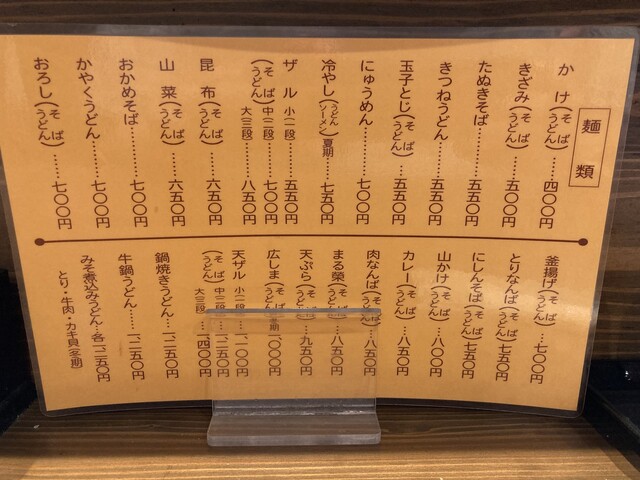 麺類
かけ(そば うどん)……四〇〇円
きざみ(そば うどん)……五〇〇円
たぬきそば………五五〇円
きつねうどん………五五〇円
玉子とじ(そば うどん)…五五〇円
にゅうめん………七〇〇円
冷やし(うどん ソーメン)夏期…七五〇円
ザル 小(一段)…五五〇円
(そば うどん) 中(二段)…七〇〇円
大(三段)…八五〇円
昆布(そば うどん)……六五〇円
山菜(そば うどん)……六五〇円
おかめそば………七〇〇円
かやくうどん………七〇〇円
おろし(そば うどん)……七〇〇円
釜揚げ(そば うどん)…七〇〇円
とりなんば(そば うどん)七五〇円
にしんそば(そば うどん)七五〇円
山かけ(そば うどん)…八〇〇円
カレー(そば うどん)…八五〇円
肉なんば(そば うどん)…八五〇円
まる榮(そば うどん)…八五〇円
天ぷら(そば うどん)…九五〇円
広しま(そば うどん)冬期一〇〇〇円
天ザル 小(一段)…一、一〇〇円
(そば うどん) 中(二段)…一二五〇円
大(三段)…一四〇〇円
鍋焼きうどん……一、二五〇円
牛鍋うどん……一、二五〇円
みそ煮込みうどん…各一二五〇円
とり・牛肉・カキ貝(冬期)